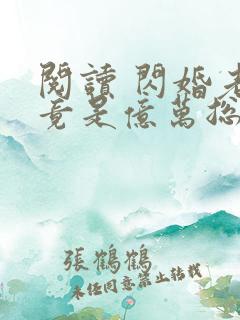 閱讀 閃婚老
竟是億萬総
張鶴鶴
未经同意禁止转载